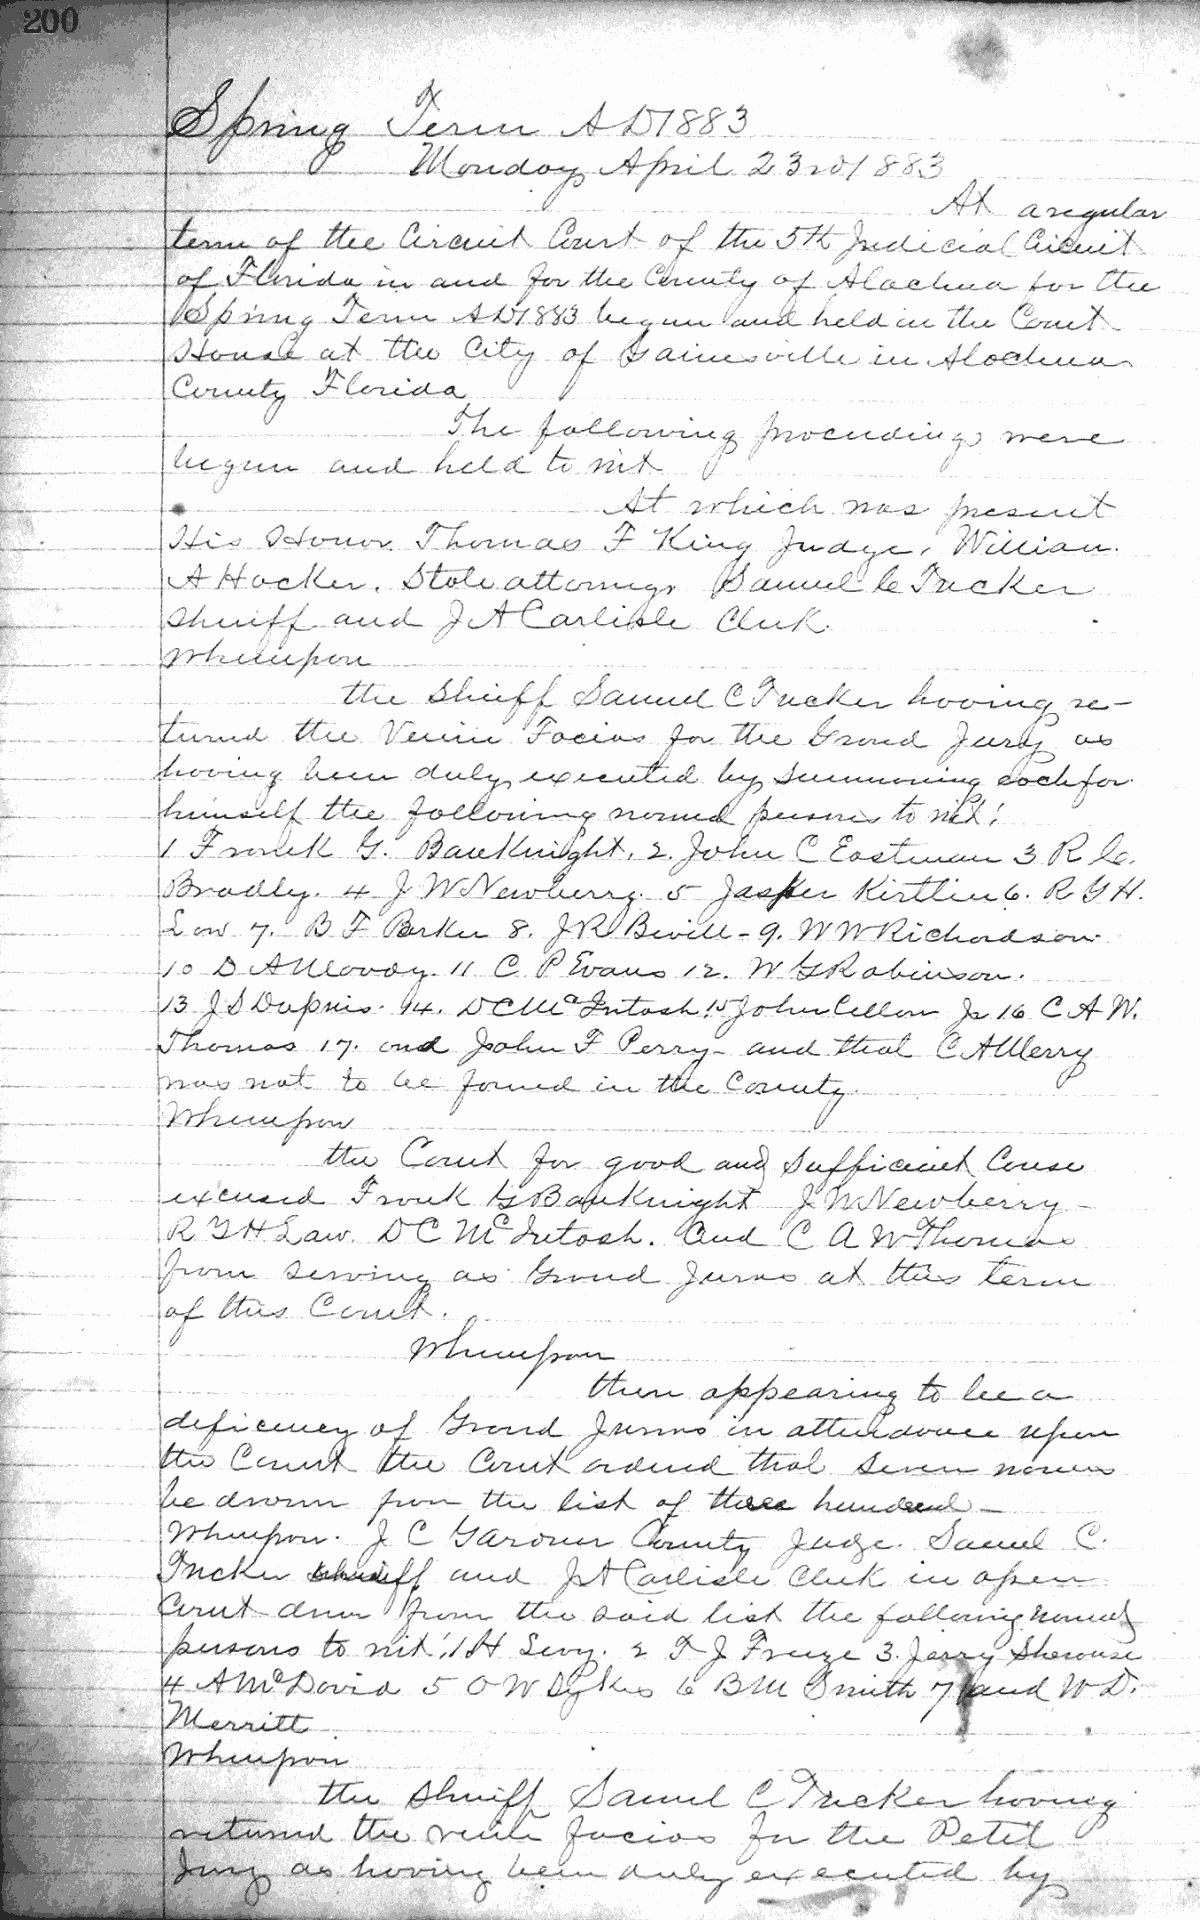 200
Spring Term A D 1883
Monday April 23rd 1883
At a regular
term of the Circuit Court of the 5th Judicial Circuit
of Florida in and for the County of Alachua for the
Spring Term A D 1883 begun and held in the Court
House at the City of Gainesville in Alachua
County Florida
The following proceedings were
begun and held to wit
At which was present
His Honor Thomas F King Judge, William
A Hocker. State attorney, Samuel C Tucker
Sheriff and J A Carlisle Clerk.
Whereupon
the Sheriff Samuel C Tucker having re-
turned the Venire Facias for the Grand Jury as
having been duly executed by summoning each for
himself the following named persons to wit:
1 Frank G. BauKnight. 2. John C Eastman 3 R C.
Bradly. 4 J W Newberry. 5 Jasper Kirtlin 6. R G H.
Law 7. B F Barker 8. J R Bevill - 9. W W Richardson
10 D A Moody. 11 C P Evans 12. W G Robinson.
13 J S Dupuis. 14. D C McIntosh. 15 John Cellon Jr 16 C A W.
Thomas 17. and John F Perry - and that C A Merry
was not to be found in the County.
Whereupon
the Court for good and sufficient Cause
excused Frank G BauKnight J W Newberry -
R G H Law. D C McIntosh. And C A W Thomas
from serving as Grand Jurors at this term
of this Court.
Whereupon
there appearing to be a
deficiency of Grand Jurors in attendance upon
the Court the Court ordered that seven names
be drawn from the list of three hundred -
Whereupon. J C Gardner County Judge. Samuel C.
Tucker Sheriff and J A Carlisle Clerk in open
Court drew from the said list the following named
persons to wit: 1 H Levy. 2 T J Freeze 3. Jerry Sherouse
4 A McDavid 5 O W Sykes 6 B M Smith 7 and W D.
Merritt
Whereupon
the Sheriff Samuel C Tucker having
returned the venire facias for the Petit
Jury as having been duly executed by